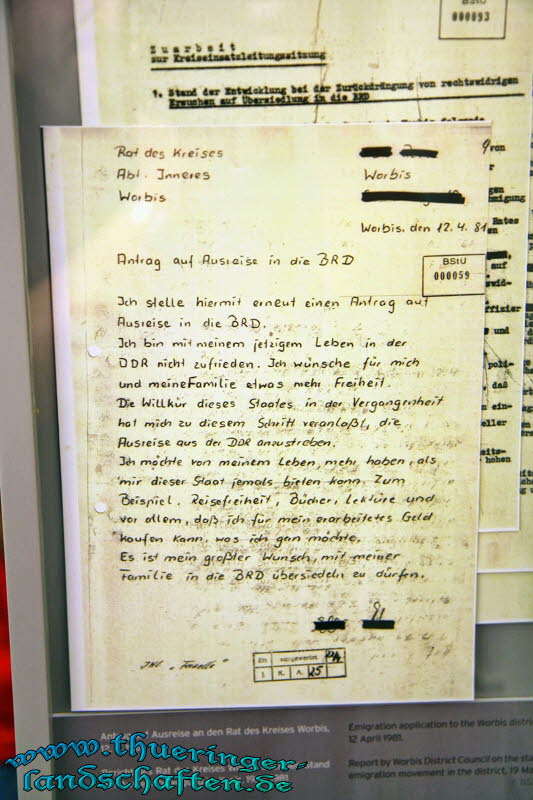 BStU
000093
Zuarbeit
zur Kreiseinsatzleitungssitzung
1. Stand der Entwicklung bei der Zurückdrängung von rechtswidrigen
Ersuchen auf Übersiedlung in die BRD
Rat des Kreises
Abt. Inneres
Worbis
Worbis
Worbis, den 12.4.81
Antrag auf Ausreise in die BRD
BStU
000059
Ich stelle hiermit erneut einen Antrag auf
Ausreise in die BRD.
Ich bin mit meinem jetzigem Leben in der
DDR nicht zufrieden. Ich wünsche für mich
und meine Familie etwas mehr Freiheit.
Die Willkür dieses Staates in der Vergangenheit
hat mich zu diesem Schritt veranlaßt, die
Ausreise aus der DDR anzustreben.
Ich möchte von meinem Leben, mehr haben, als
mir dieser Staat jemals bieten kann. Zum
Beispiel. Reisefreiheit, Bücher, Lektüre und
vor allem, daß ich für mein erarbeitetes Geld
kaufen kann, was ich gern möchte.
Es ist mein größter Wunsch, mit meiner
Familie in die BRD übersiedeln zu dürfen.
ausgewertet
K. A. 25
Ausreise an den Rat des Kreises Worbis,
Emigration application to the Worbis
12 April 1981.
Report by Worbis District Council on the
emigration movement in the district, 19
www.thueringer-
landschaften.de